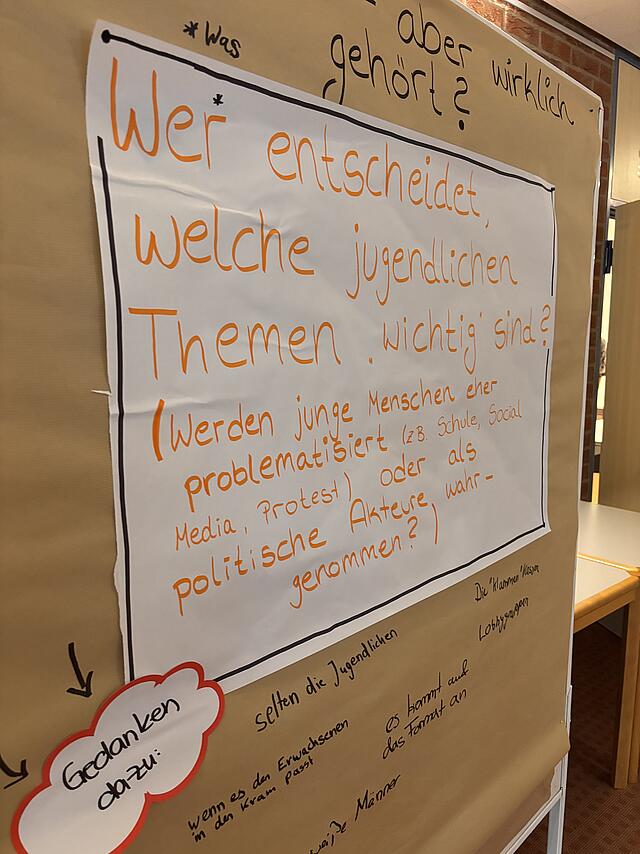 - aber wirklich
gehört?
*Was
Wer*
entscheidet,
welche jugendlichen
Themen „wichtig" sind?
(Werden junge Menschen eher
problematisiert (z.B. Schule, Social
Media, Protest) oder als
politische Akteure wahr-
genommen?)
Gedanken
dazu:
selten die Jugendlichen
Die "klammen" Kassen
Lobbygruppen
wenn es den Erwachsenen
in den Kram passt
es kommt auf
das Format an
weiße Männer